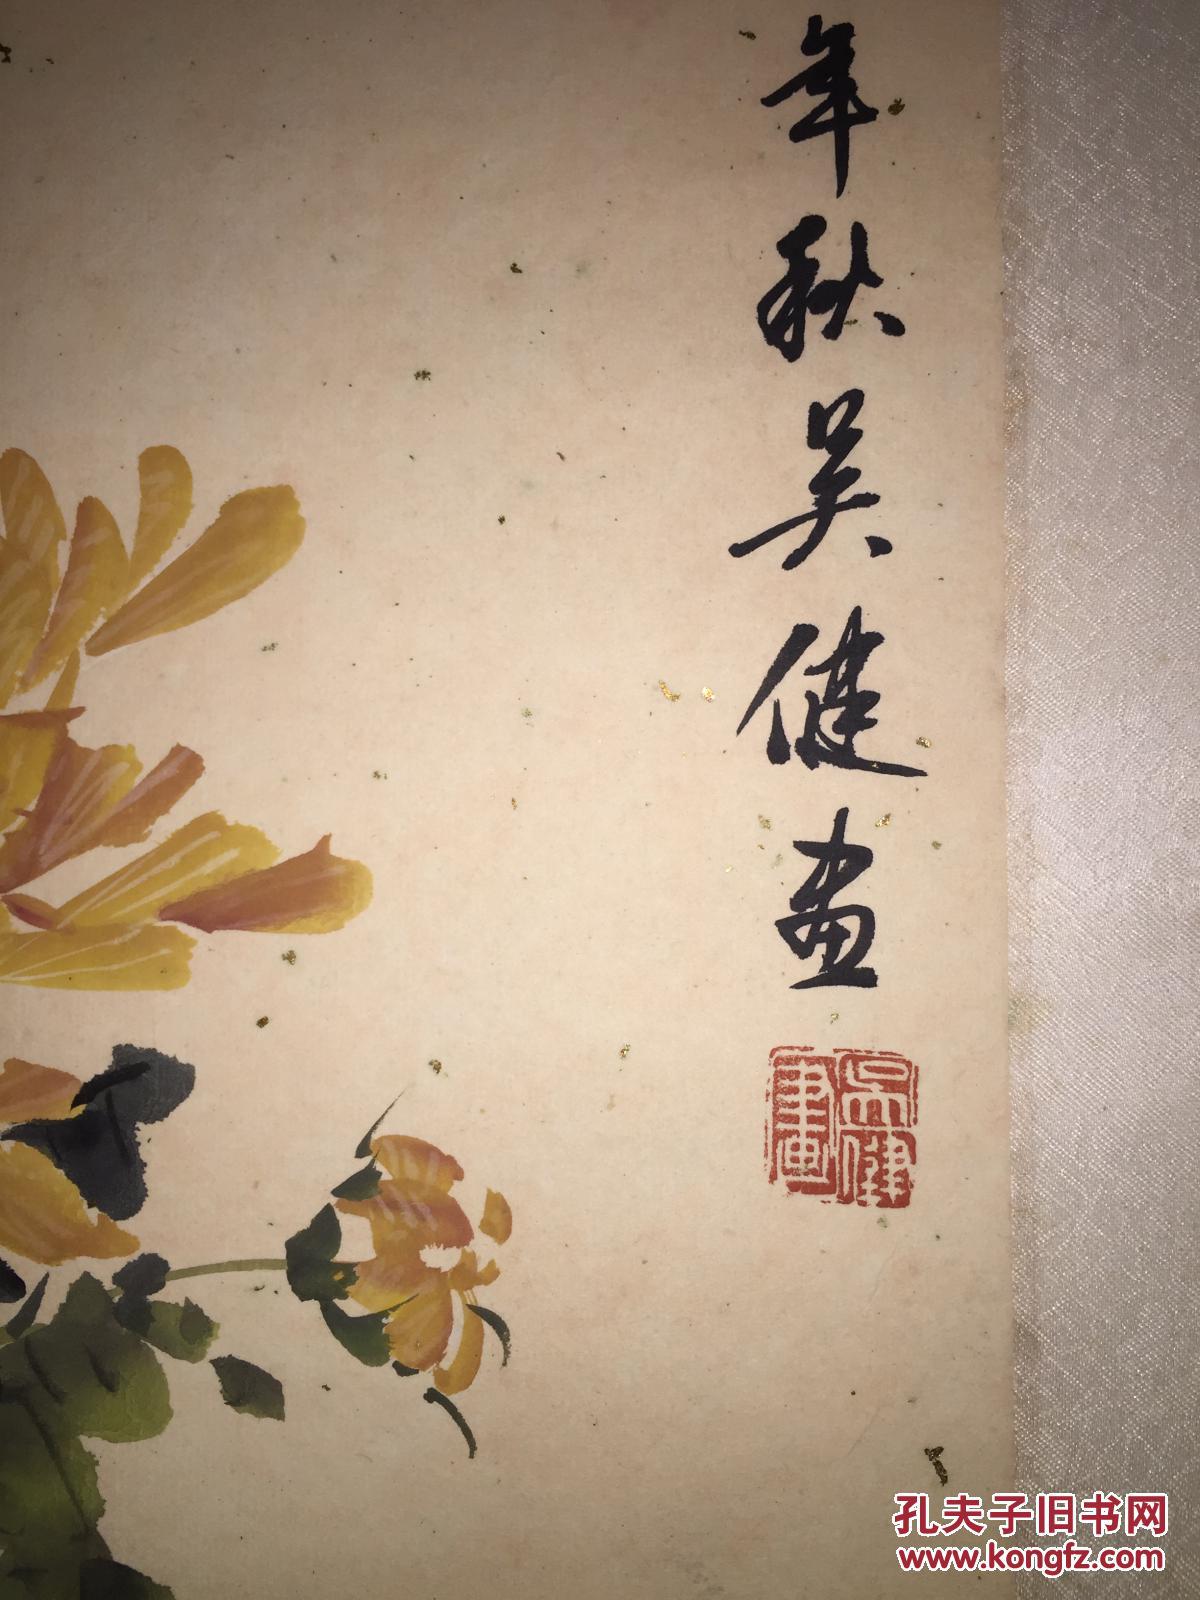 年秋吴健画
吴健
书画
孔夫子旧书网
www.kongfz.com